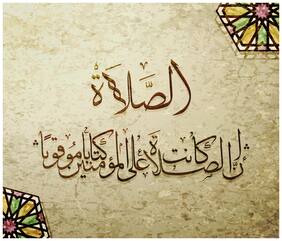 الصَّلَاةُ
"إِنَّ الصَّلَاةَ كَانَتْ عَلَى الْمُؤْمِنِينَ كِتَابًا مَوْقُوتًا"